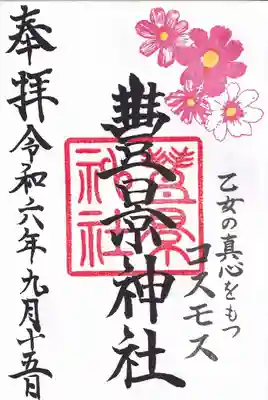 乙女の真心をもつ
コスモス
豊景神社
奉拝
令和六年九月十五日